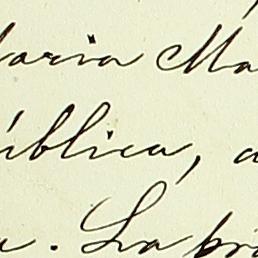 Maria Ma
ública, a
a. La pro